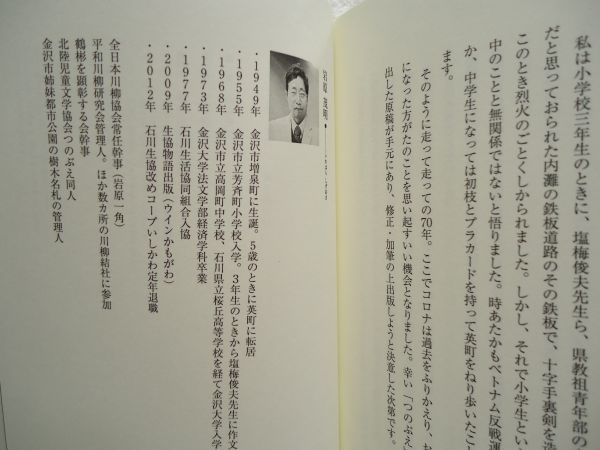 私は小学校三年生のときに、塩梅俊夫先生ら、県教祖青年部の
だと思っておられた内灘の鉄板道路のその鉄板で、十字手裏剣を造
このとき烈火のごとくしかられました。しかし、それで小学生とい
中のことと無関係ではないと悟りました。時あたかもベトナム反戦運
か、中学生になっては初枝とプラカードを持って英町をねり歩いたこと
ます。
そのように走って走っての70年。ここでコロナは過去をふりかえり、お
になった方がたのことを思い起すいい機会となりました。幸い「つのぶえ」
出した原稿が手元にあり、修正・加筆の上出版しようと決意した次第です。
岩原 茂明
・1949年 金沢市増泉町に生誕。5歳のときに英町に転居
・1955年 金沢市立芳斉町小学校入学。3年生のときから塩梅俊夫先生に作文
・1968年 金沢市立高岡町中学校、石川県立桜丘高等学校を経て金沢大学入学
・1973年 金沢大学法文学部経済学科卒業
・1977年 石川生活協同組合入協
・2009年 生協物語出版(ウインかもがわ)
・2012年 石川生協改めコープいしかわ定年退職
全日本川柳協会常任幹事(岩原一角)
平和川柳研究会管理人。ほか数カ所の川柳結社に参加
鶴彬を顕彰する会幹事
北陸児童文学協会つのぶえ同人
金沢市姉妹都市公園の樹木名札の管理人